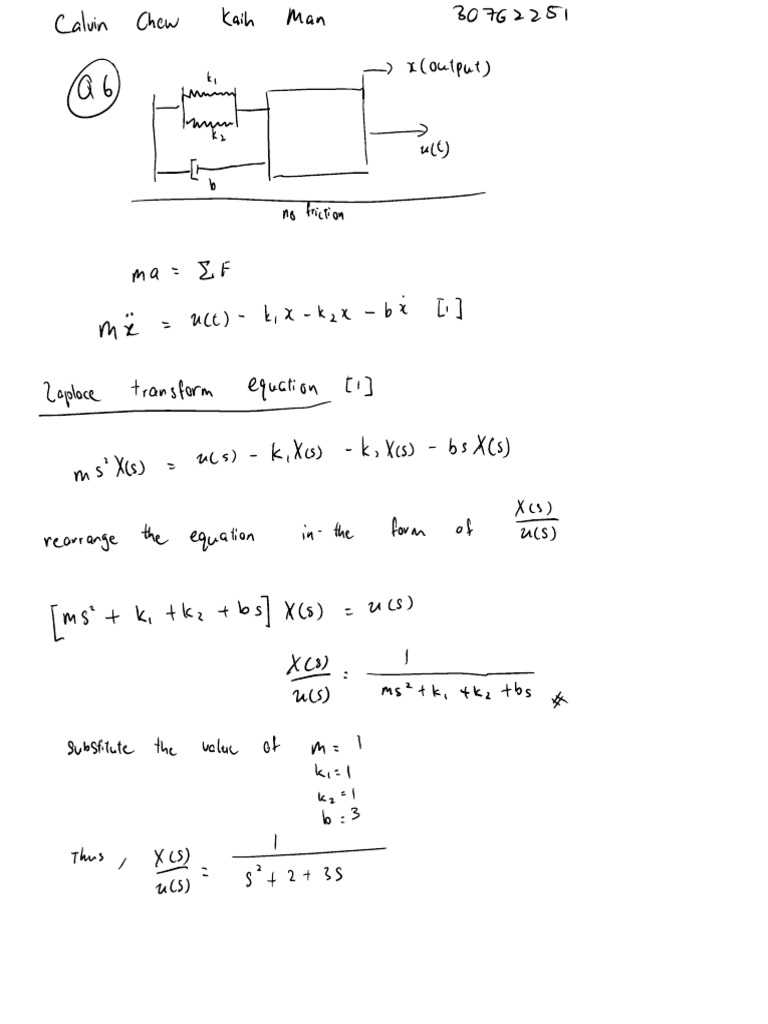 Calvin Chew Kaih Man 30762251
Q6
k₁
x(output)
k₂
u(t)
b
no friction
ma = ΣF
mẍ = u(t) - k₁x - k₂x - bẋ [1]
Laplace transform equation [1]
ms²X(s) = u(s) - k₁X(s) - k₂X(s) - bsX(s)
rearrange the equation in the form of X(s)/u(s)
[ms² + k₁ + k₂ + bs] X(s) = u(s)
X(s)/u(s) = 1/(ms² + k₁ + k₂ + bs) *
Substitute the value of m = 1
k₁ = 1
k₂ = 1
b = 3
Thus, X(s)/u(s) = 1/(s² + 2 + 3s)